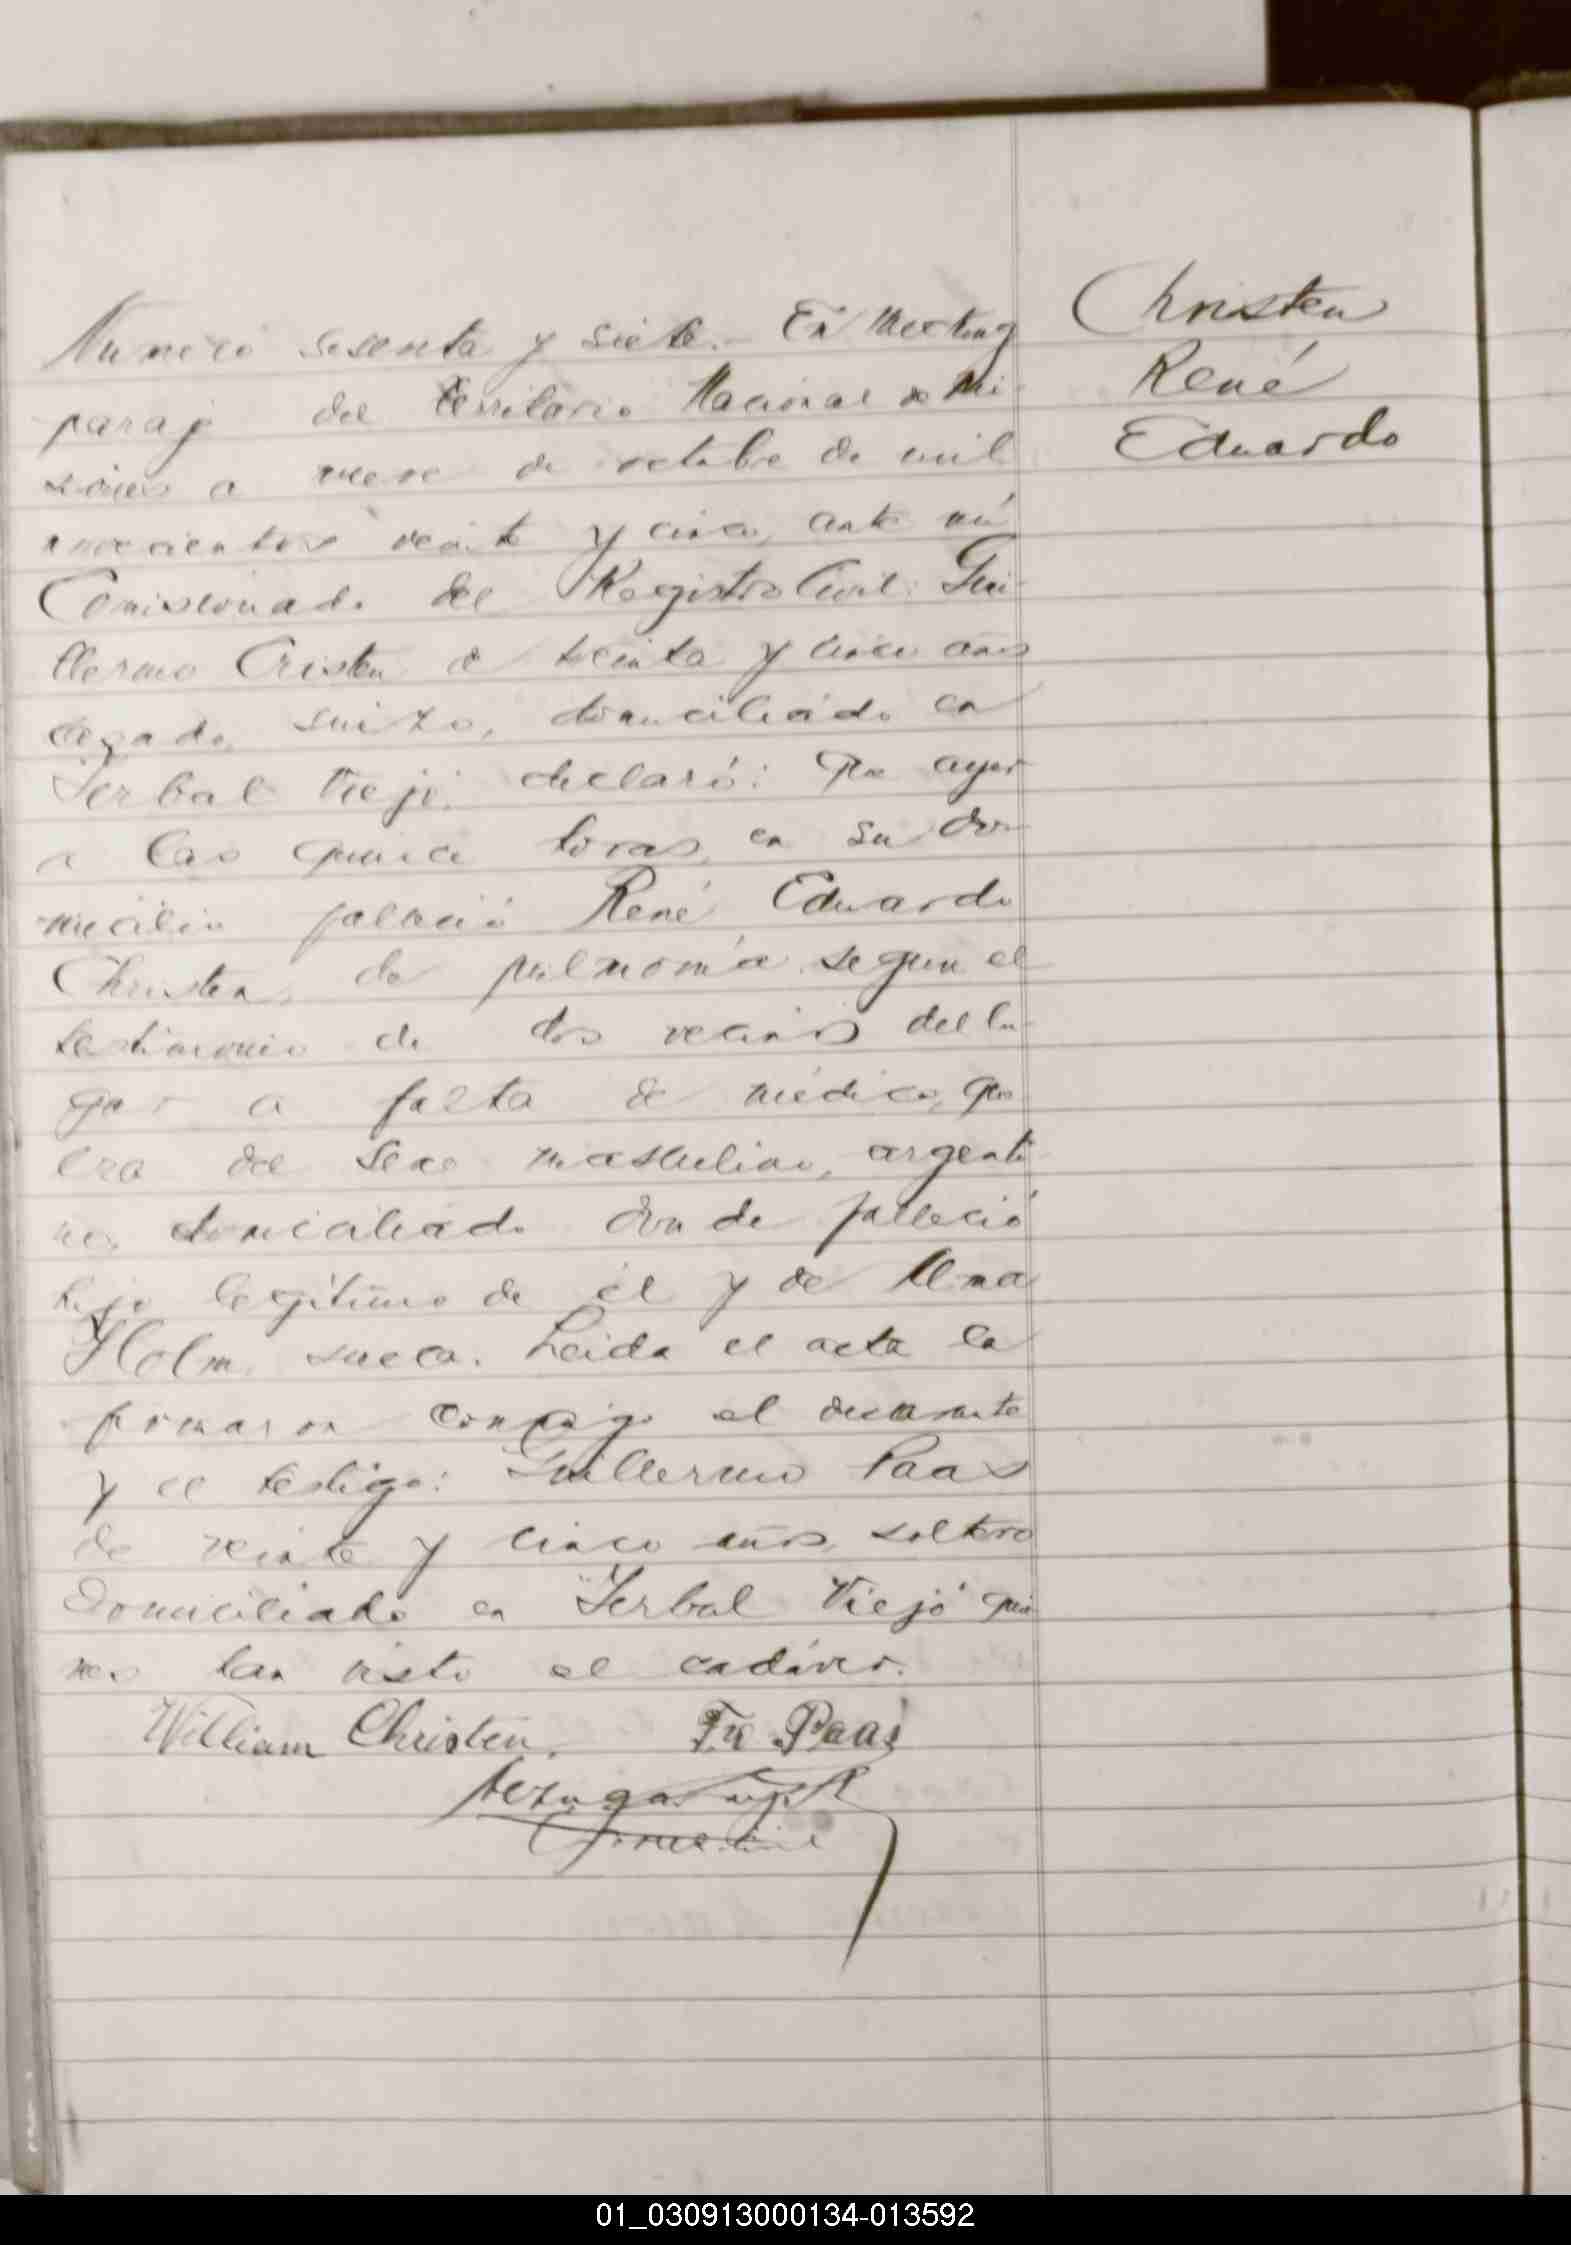 Numero sesenta y siete.- En Mecking
paraje del Territorio Nacional de Mi-
siones a nueve de octubre de mil
novecientos veinte y cinco, ante mi
Comisionado del Registro Civil: Gui-
llermo Cristen de treinta y cinco años
casado, suizo, domiciliado en
Yerbal Viejo, declaró: Que ayer
a las quince horas, en su do-
micilio falleció René Eduardo
Christen, de pulmonía segun el
testimonio de dos vecinos del lu-
gar a falta de médico, que
era del sexo masculino, argenti-
no, domiciliado donde falleció
hijo legítimo de él y de Alma
Holm, sueca. Leida el acta la
firmaron conmigo el declarante
y el testigo: Guillermo Paas
de veinte y cinco años, soltero
domiciliado en Yerbal Viejo quie
nes han visto el cadáver.
William Christen. Fr Paas
Christen
René
Eduardo
01_030913000134-013592